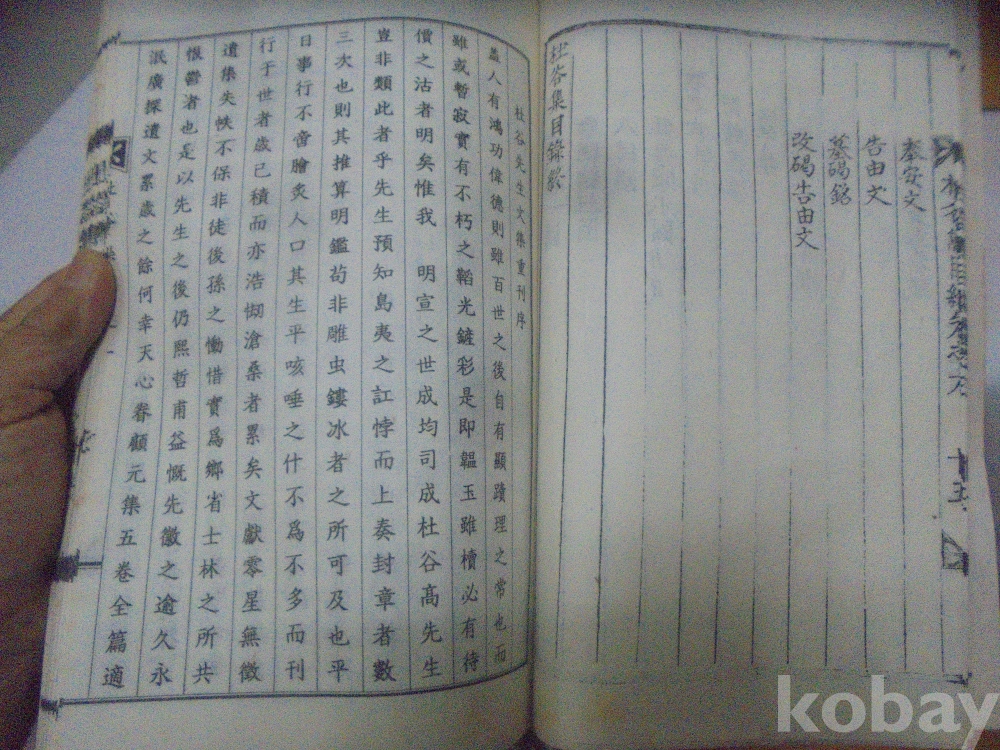 奉安文
告由文
墓碣銘
改碣告由文
杜谷集目錄終
杜谷先生文集重刊序
蓋人有鴻功偉德則雖百世之後自有顯蹟理之常也而
雖或暫寂實有不朽之韜光鏟彩是即韞玉雖櫝必有待
價之沽者明矣惟我 明宣之世成均司成杜谷高先生
豈非類此者乎先生預知島夷之訌悖而上奏封章者數
三次也則其推算明鑑苟非雕虫鏤冰者之所可及也平
日事行不啻膾炙人口其生平咳唾之什不爲不多而刊
行于世者歲已積而亦浩刼滄桑者累矣文獻零星無徵
遺集失帙不保非徒後孫之慟惜實爲鄉省士林之所共
恨鬱者也是以先生之後仍熙哲甫益慨先徽之逾久永
泯廣探遺文累歲之餘何幸天心眷顧元集五卷全篇適
kobay